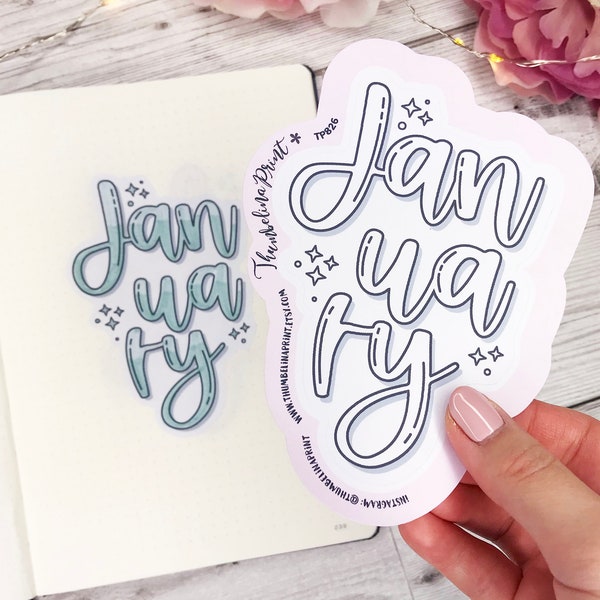 Jan
ua
ry
Jan
ua
ry
Thumbelina Print *
TP826
WWW.THUMBELINAPRINT.ETSY.COM
INSTAGRAM: @THUMBELINAPRINT